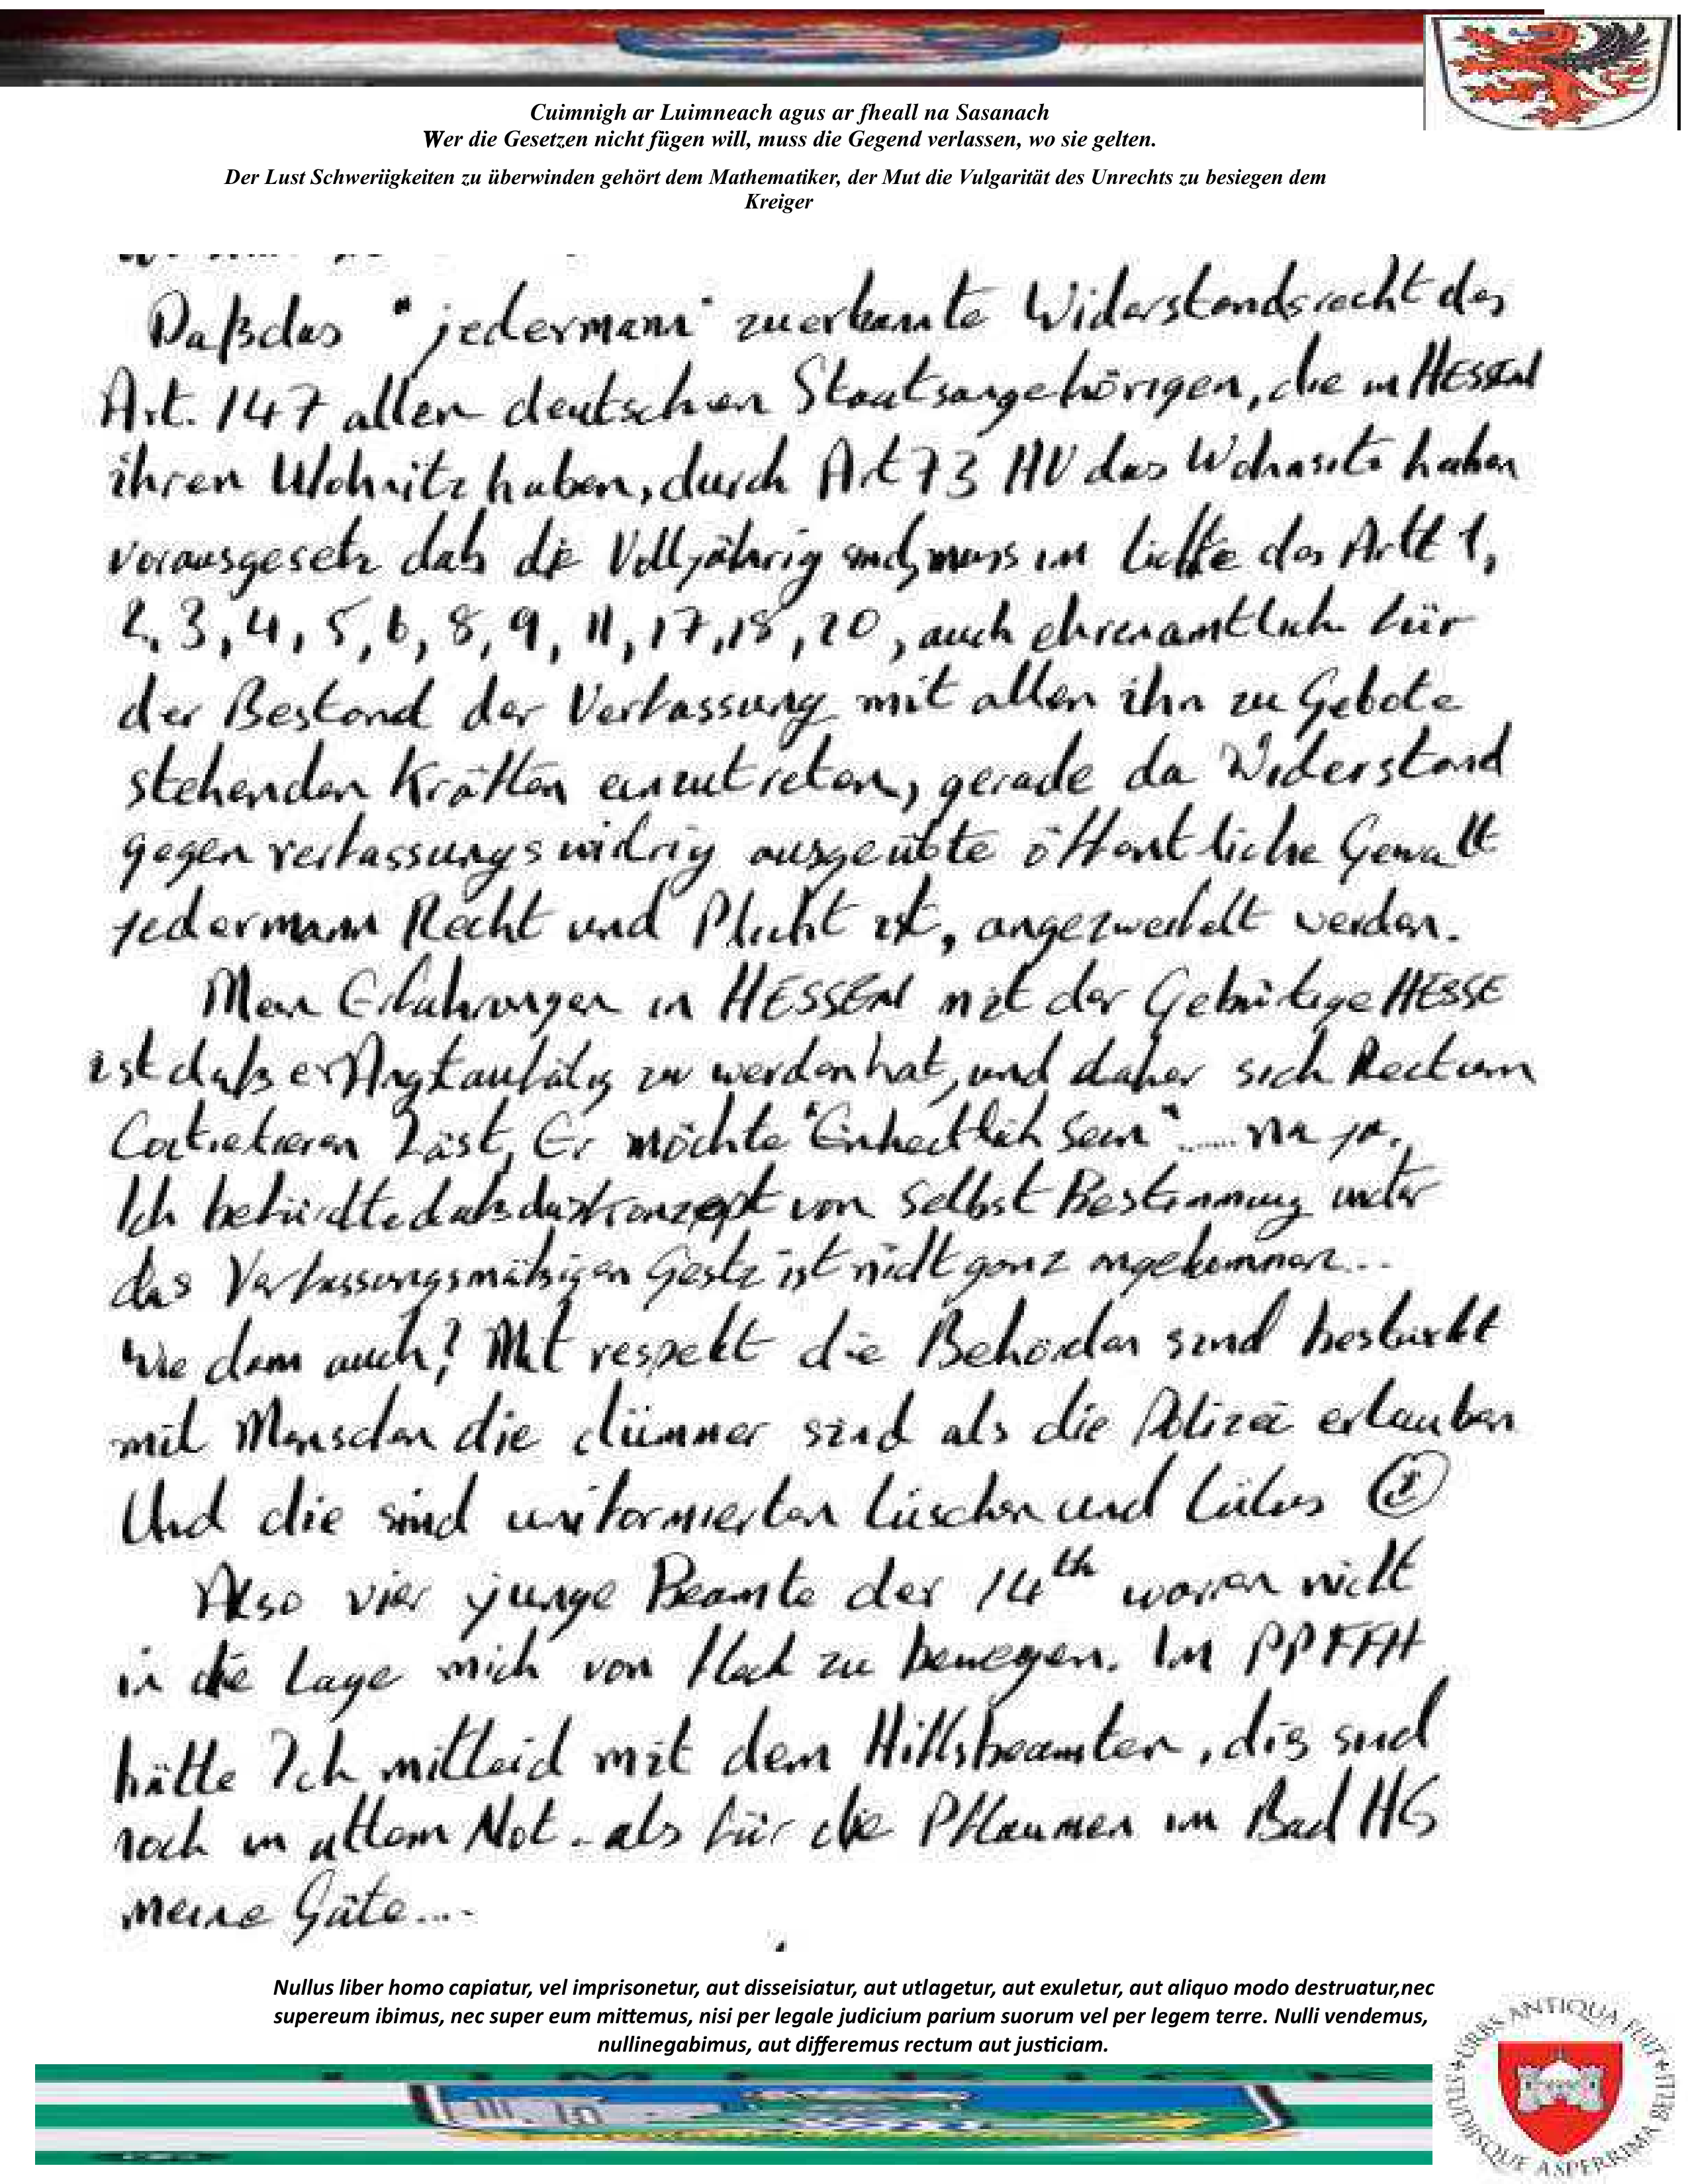 Cuimnigh ar Luimneach agus ar fheall na Sasanach
Wer die Gesetzen nicht fügen will, muss die Gegend verlassen, wo sie gelten.
Der Lust Schweriigkeiten zu überwinden gehört dem Mathematiker, der Mut die Vulgarität des Unrechts zu besiegen dem
Kreiger
Daß das "jedermann" zuerkannte Widerstandsrecht des
Art. 147 allen deutschen Staatsangehörigen, die in HESSEN
ihren Wohnitz haben, durch Art 73 HV das Wohnsitz haben
vorausgesetz daß die Volljährig sind, muss im lichte des Artt 1,
2, 3, 4, 5, 6, 8, 9, 11, 17, 18, 20, auch ehrenamtlich für
der Bestand der Verfassung mit allen ihn zu Gebote
stehenden Kräften einzutreten, gerade da Widerstand
gegen verfassungswidrig ausgeübte öffentliche Gewalt
jedermann Recht und Pflicht ist, angezweifelt werden.
Mein Erfahrungen in HESSEN mit der Gebürtige HESSE
ist daß er Angt aufällig zu werden hat, und daher sich Rectum
Läst, Er möchte "Einheitlich Sein"..... na ja.
Ich befürdte daß das Konzept von Selbst Bestimmung unter
das Verfassungsmäßigen Gestz ist nicht ganz angekommen...
Wie denn auch? Mit respekt die Behörden sind bestückt
mit Menschen die dümmer sind als die Polizei erlauben
Und die sind uniformierten lüschen und
Also vier junge Beamte der 14th waren nicht
in die Lage mich von fleck zu bewegen. Im PPFFH
hätte Ich mitleid mit dem Hilfsbeamten, die sind
noch in Not - als für die Pflaumen im Bad HG
meine Güte....
Nullus liber homo capiatur, vel imprisonetur, aut disseisiatur, aut utlagetur, aut exuletur, aut aliquo modo destruatur,nec
supereum ibimus, nec super eum mittemus, nisi per legale judicium parium suorum vel per legem terre. Nulli vendemus,
nullinegabimus, aut differemus rectum aut justiciam.
URBS ANTIQUA FUIT STUDIISQUE ASPERRIMA BELLI